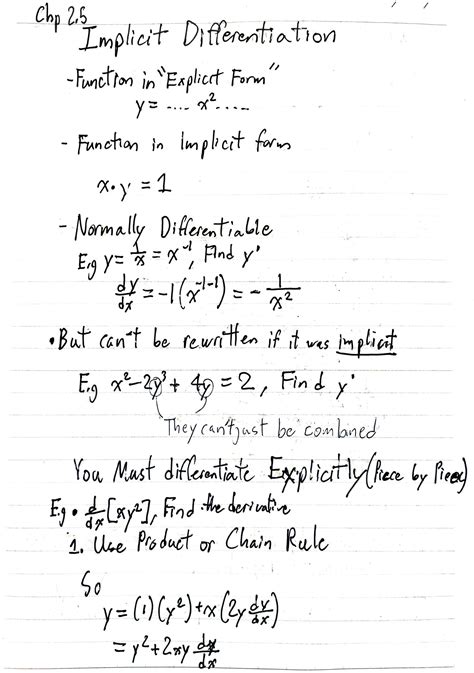 Chp 2.5
Implicit Differentiation
-Function in "Explicit Form"
y = .... x².....
- Function in Implicit form
x·y = 1
- Normally Differentiable
E.g y = 1/x = x⁻¹, Find y'
dy/dx = -1(x⁻¹⁻¹) = - 1/x²
•But can't be rewritten if it was implicit
E.g x²-2y³+ 4y = 2, Find y'
They can't just be combined
You Must differentiate Explicitly (Piece by Piece)
E.g • d/dx [xy²], Find the derivative
1. Use Product or Chain Rule
So
y = (1)(y²)+x(2y dy/dx)
= y²+2xy dy/dx